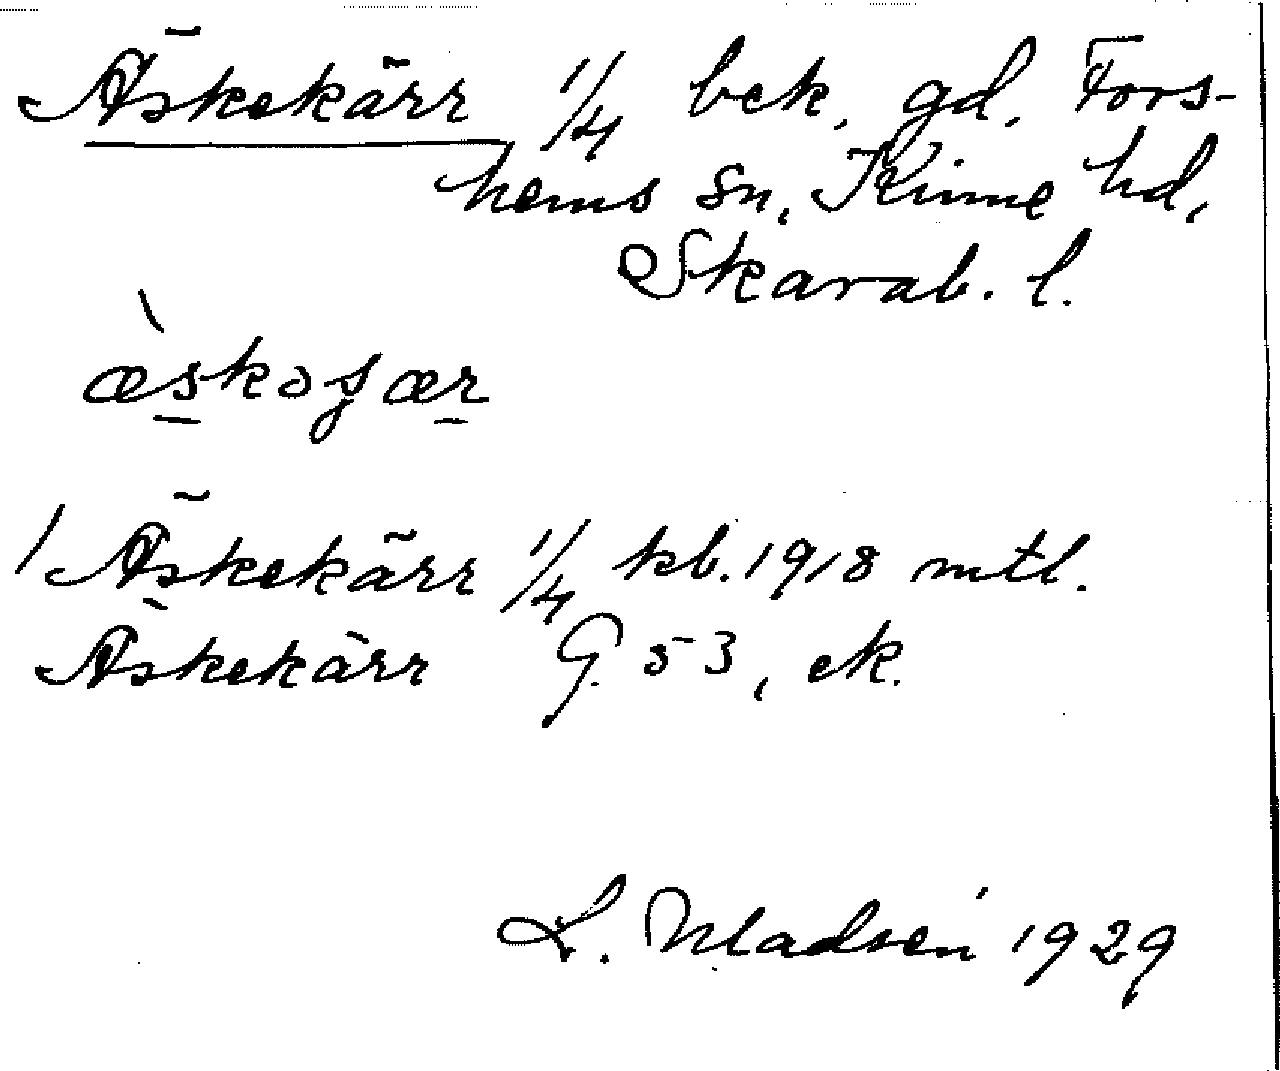 Äskekärr 1/4 bek. gd. Fors-
hems sn, Kinne hd,
Skarab. l.
æ̀skəʃær
/ Äskekärr 1/4 kb. 1918 mtl.
Äskekärr G. 53, ek.
1929